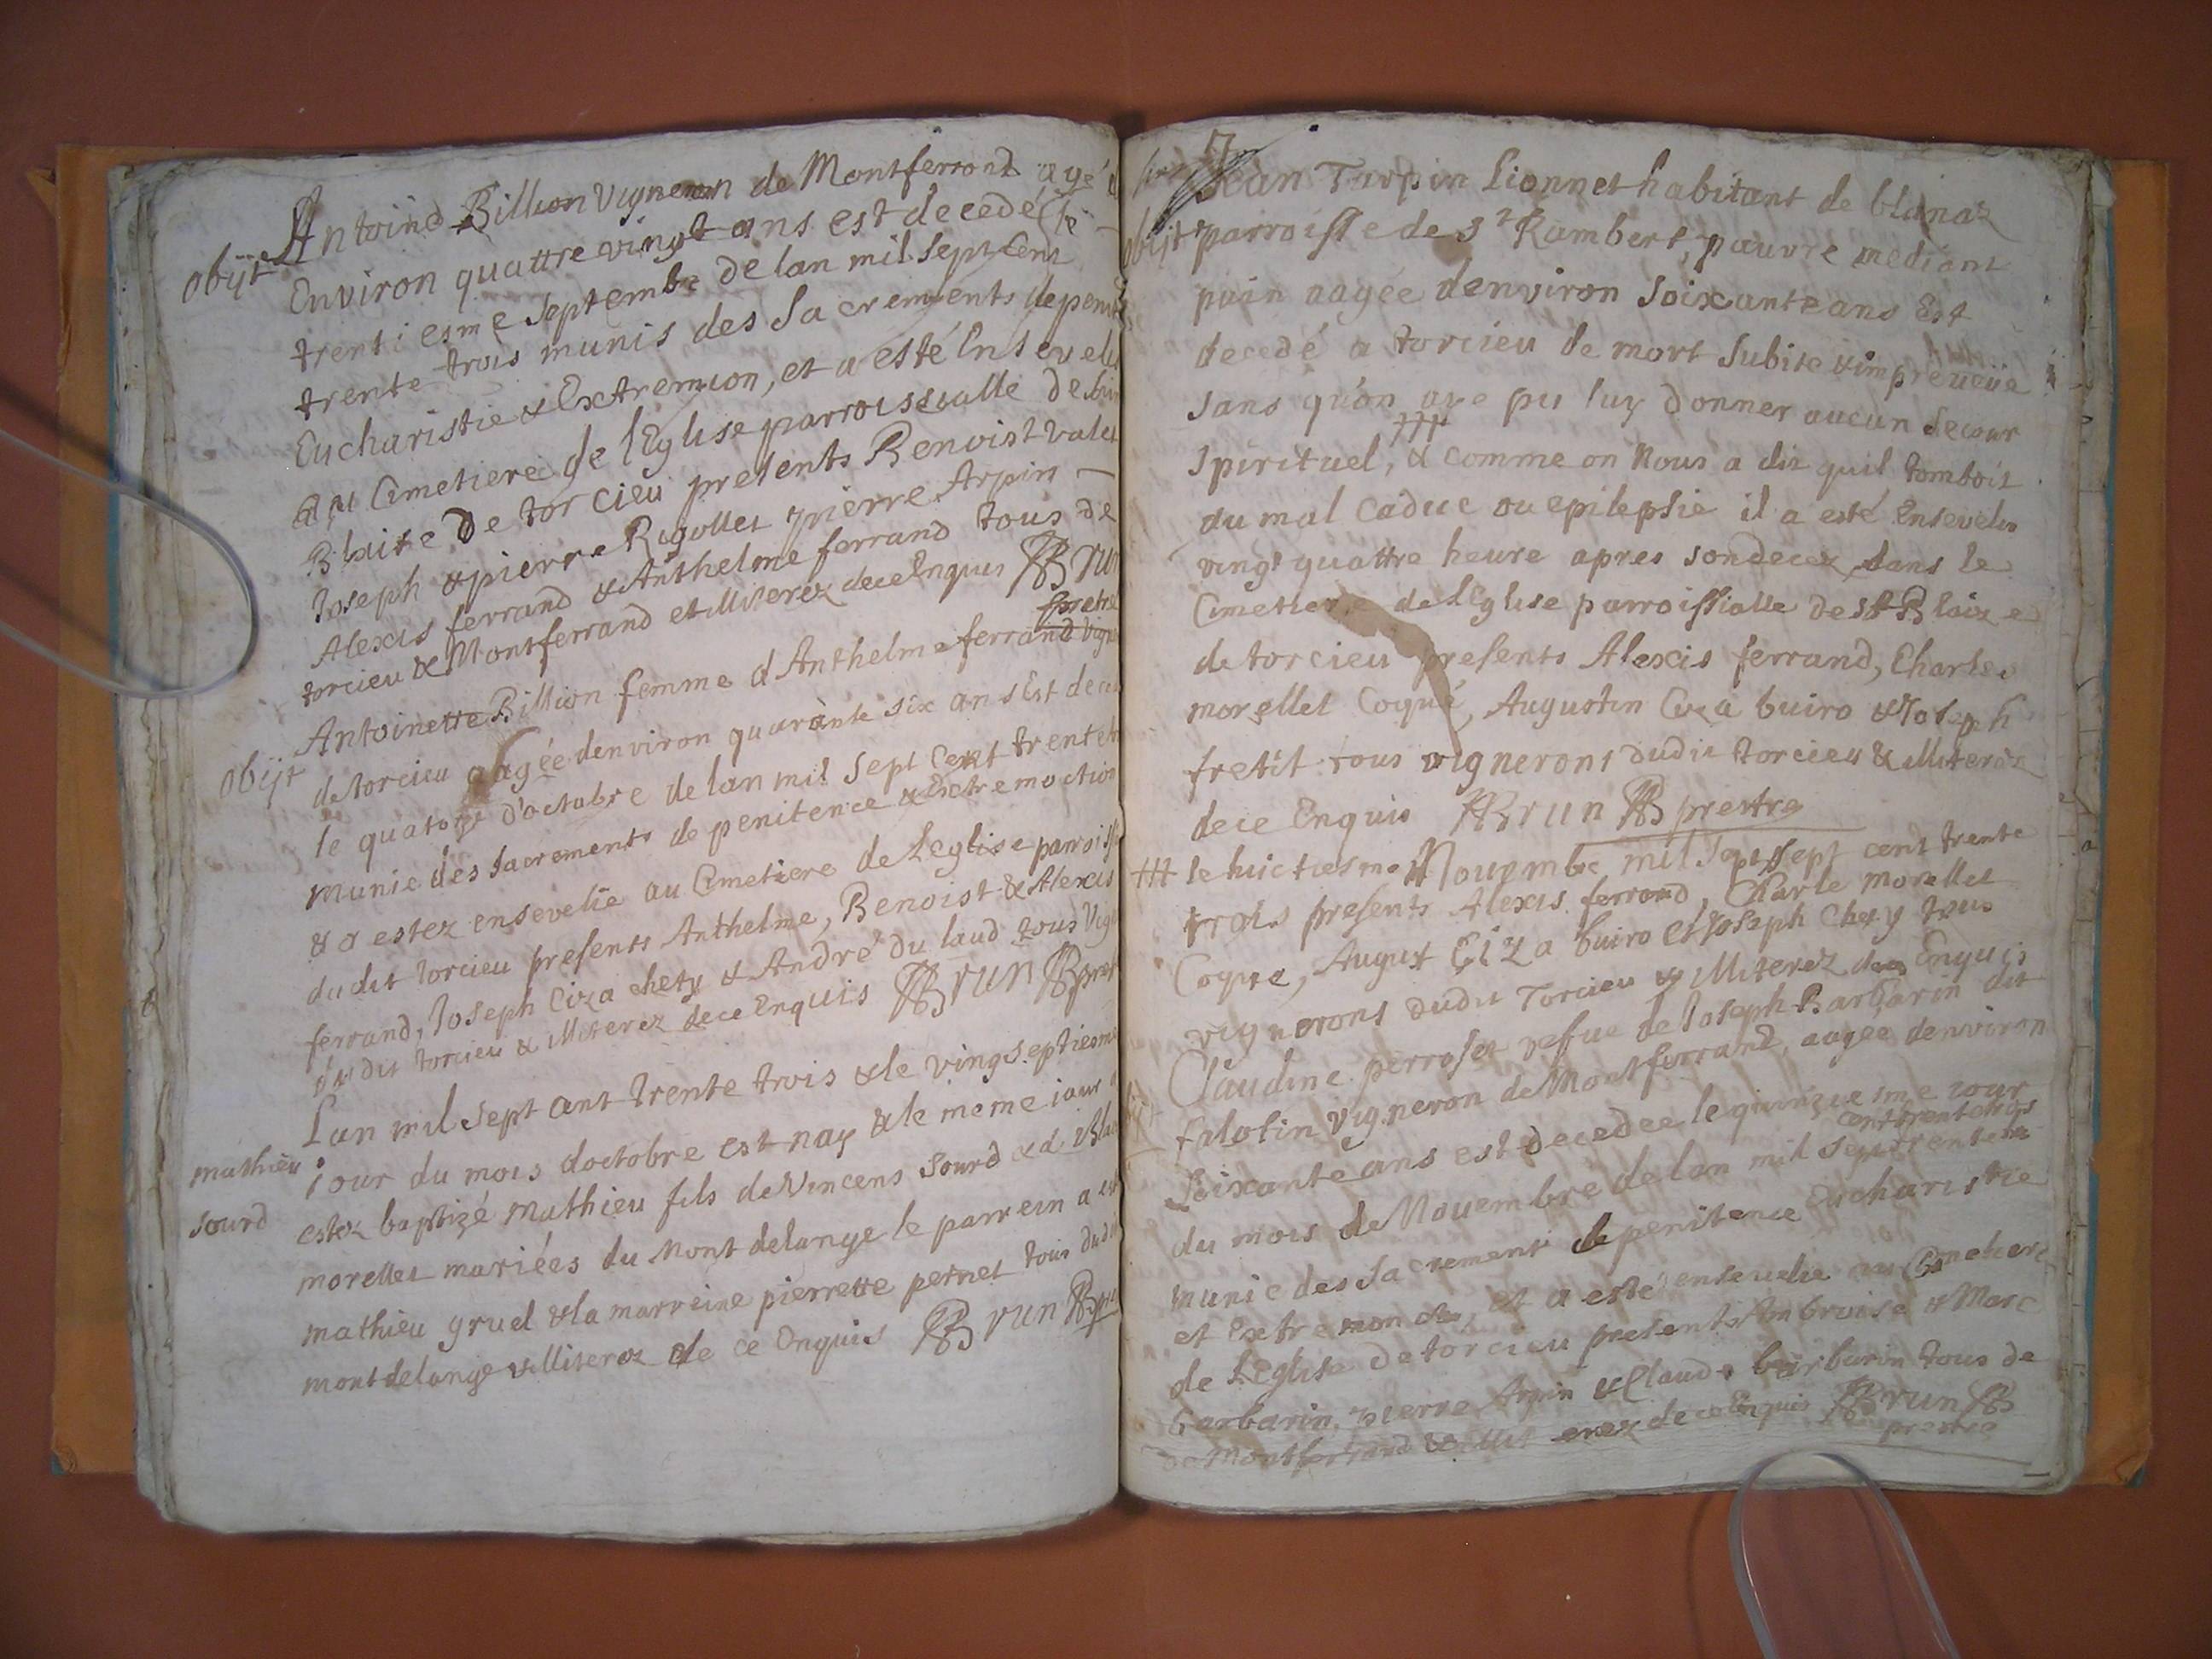 obijt
Antoine Billion Vigneron de Montferrond agé
Environ quattre vingt ans est decedé le
trentiesme Septembe de lan mil Sept Cent
trente trois munis des Sacrements de penit
Eucharistie & Extremion, et a esté Enseveli
au Cimetiere de lEglise parroissialle de Sain
Blaise De torcieu presents Benoist Valet
Joseph & pierre Rigollet pierre Arpin
Alexis ferrand & Anthelme ferrand tous de
torcieu & Montferrand et illiterez dece Enquis Brun
pretre
obijt
Antoinette Billion femme d Anthelme ferrand Vign
de torcieu aagée denviron quarante six ans Est dece
le quatorze d'octobre de lan mil Sept Cent trente
munie des sacrements de penitence & Extremoction
& a estez ensevelie au Cimetiere de Leglise parroiss
dudit torcieu presents Anthelme, Benoist & Alexis
ferrand, Joseph Ciza chety & André du laud tous Vig
du dit torcieu & illiterez dece Enquis Brun pret
mathieu
sourd
Lan mil Sept ant trente trois & le vingseptiesme
iour du mois doctobre est nay & le meme iour
estez baptizé Mathieu fils de Vincens Sourd & d
morellet mariées du Mont delange le parrein a
mathieu gruel & la marreine pierrette pernet tous dudi
montdelange & illiterez de ce Enquis Brun
17
obijt
Jean Turpin Lionnet habitant de blanaz
parroisse de St Rambert, pauvre mediant
pain aagée denviron Soixante ans Est
decedé a torcieu de mort Subite & impreueüe
Sans qu'on aye pu luy donner aucun secour
Spirituel, +++ & comme on Nous a dit quil tomboit
du mal Caduc ou epilepsie il a esté Ensevelis
vingt quattre heure apres son decez dans le
Cimetiere de LEglise parroissialle de St Blaize
de torcieu presents Alexis ferrand, Charle
morellet Coque, Augustin Ciza buiro & Joseph
fretit tous vignerons dudit torcieu & illiterez
dece Enquis Brun prestre
+++ le huictiesme Nouembe mil Sept sept cent trente
trois presents Alexis ferrand, Charle morellet
Coque, August Ciza buiro et Joseph Chety tous
vignerons dudit Torcieu & illiterez dece Enquis
Claudine perroset veffue de Joseph Barbarin dit
falotin Vigneron de Montferrand, aagee denviron
Soixante ans est decedee le quinzie sme iour
cent trente trois
du mois de Nouembre de lan mil Sept trente
munie des Sacrement de penitence Eucharistie
et Extremon, et a esté enseuelie au Cimetiere
de Leglise de torcieu presents Ambroise & Marc
barbarin, pierre Arpin & Claude barbarin tous de
de Montferrand & illit erez de ce Enquis Brun
prestre